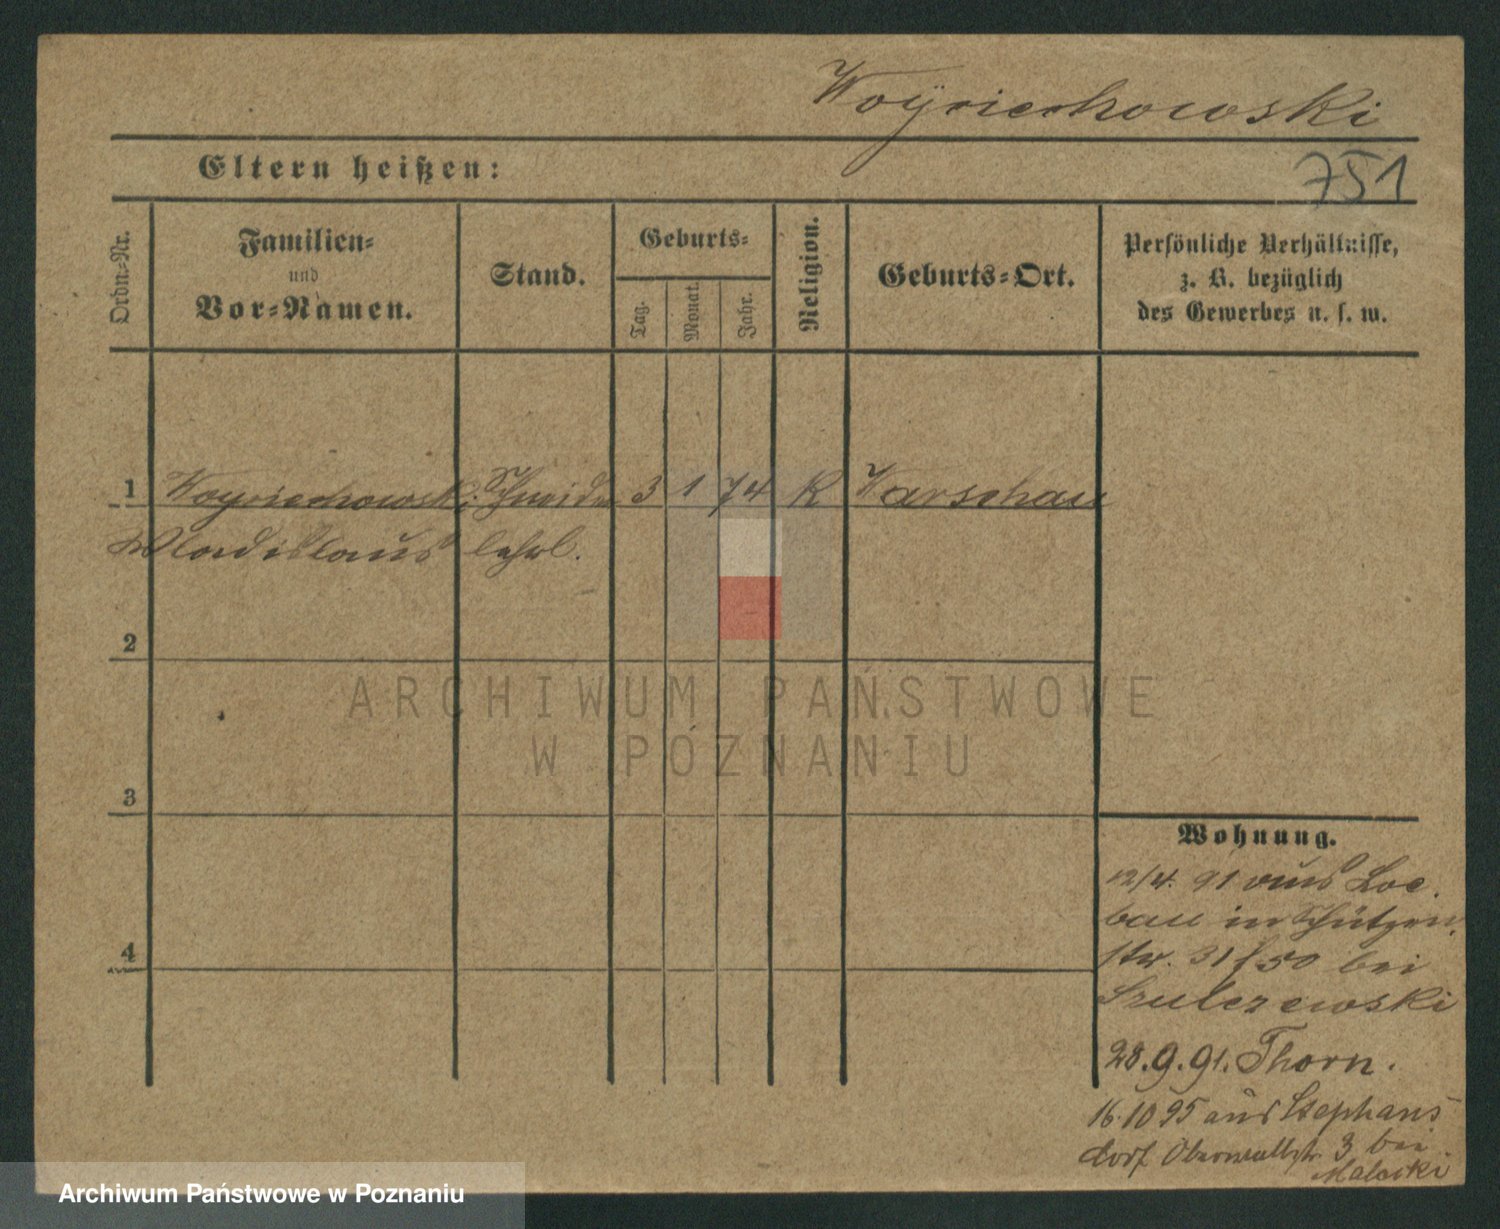 Woyciechowski
Eltern heißen:
751
Ordn=Nr.
Familien=
und
Vor=Namen.
Stand.
Geburts=
Tag.
Monat.
Jahr.
Religion.
Geburts=Ort.
Persönliche Verhältnisse,
z. B. bezüglich
des Gewerbes u. s. w.
1 Woyciechowski Schneider 3 1 74 K Warschau
Wladislaus lehrl.
2
ARCHIWUM PAŃSTWOWE
W POZNANIU
3
Wohnung.
12/4. 91 aus Loe
bau in Schützen
str. 31/50 bei
Szulczewski
4
28.9.91. Thorn.
16.10 95 aus Stephans
dorf Oberwallstr. 3 bei
Archiwum Państwowe w Poznaniu